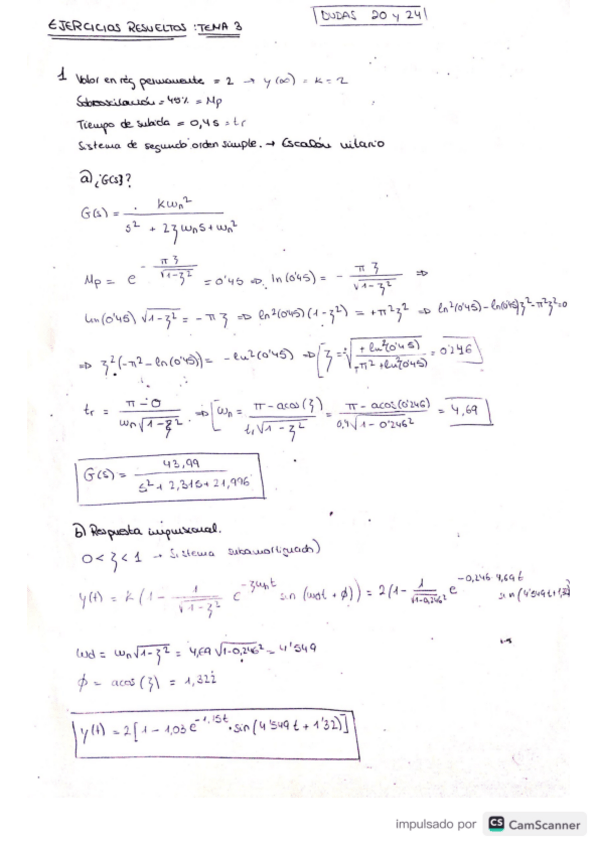 EJERCICIOS RESUELTOS : TEMA 3
DUDAS 20 y 24
1 Valor en rég permanente = 2 → y(∞) = k = 2
Sobreoscilación = 45% = Mp
Tiempo de subida = 0,4s = tr
Sistema de segundo orden simple. → Escalón unitario
a) ¿G(s)?
G(s) = kωn² / s² + 2ζωns + ωn²
Mp = e^(-πζ/√1-ζ²) = 0'45 ⇒ ln(0'45) = - πζ/√1-ζ² ⇒
ln(0'45) √1-ζ² = -πζ ⇒ ln²(0'45)(1-ζ²) = +π²ζ² ⇒ ln²(0'45) - ln(0'45)ζ² - π²ζ² = 0
⇒ ζ²(-π² - ln(0'45)) = -ln²(0'45) ⇒ ζ = √(+ln²(0'45) / +π² + ln²(0'45)) = 0'246
tr = π-θ / ωn√1-ζ² ⇒ ωn = π - acos(ζ) / tr√1-ζ² = π - acos(0'246) / 0,4√1-0'246² = 4,69
G(s) = 43,99 / s² + 2,31s + 21,996
b) Respuesta impulsional.
0 < ζ < 1 → Sistema subamortiguado)
y(t) = k(1 - 1/√1-ζ² e^(-ζωnt) sin(ωdt + ϕ)) = 2(1 - 1/√1-0,246² e^(-0,246·4,69t) sin(4'549t+1,32)
ωd = ωn√1-ζ² = 4,69√1-0,246² = 4'549
ϕ = acos(ζ) = 1,322
y(t) = 2[1 - 1,03e^(-1,15t)·sin(4'549t + 1'32)]
impulsado por CS CamScanner